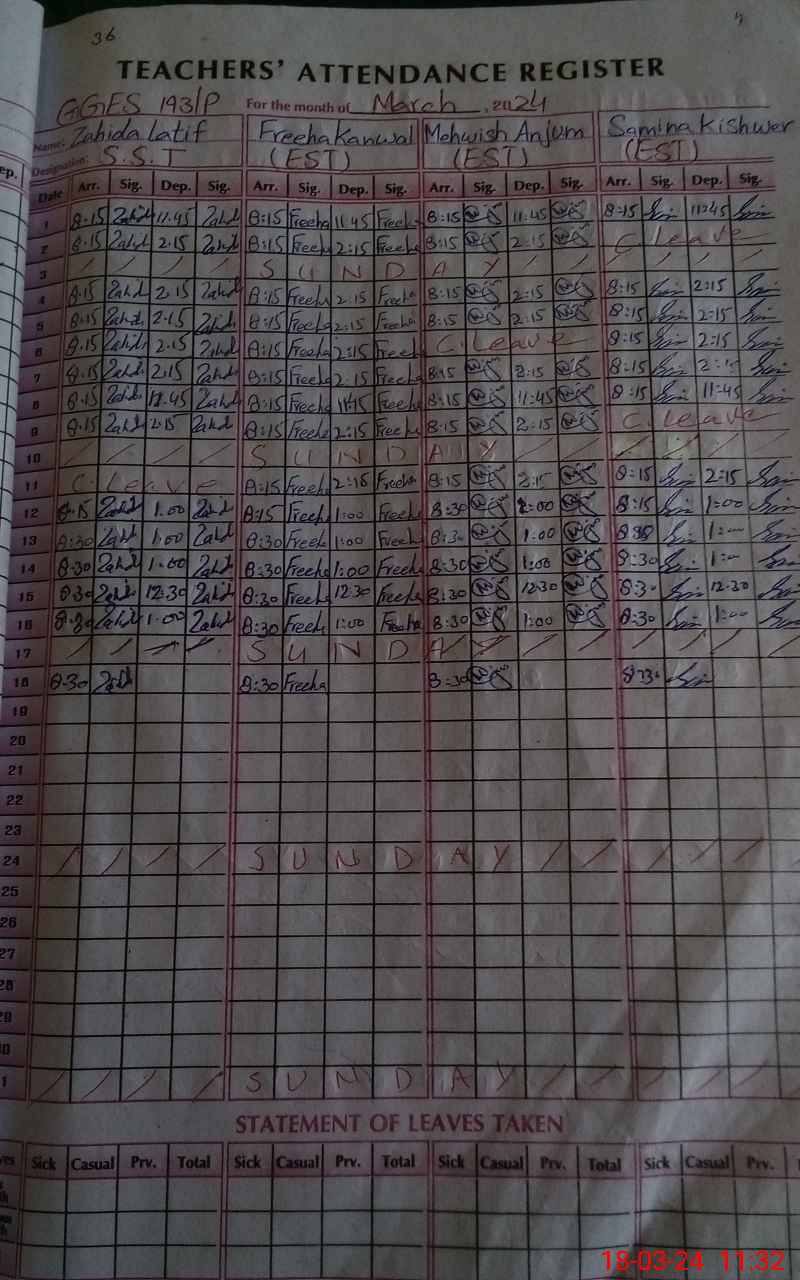 36
TEACHERS' ATTENDANCE REGISTER
GGES 193/P For the month of March, 2024
Name: Zahida Latif Freeha Kanwal Mehwish Anjum Samina Kishwer
Designation: S.S.T (EST) (EST) (EST)
Date Arr. Sig. Dep. Sig. Arr. Sig. Dep. Sig. Arr. Sig. Dep. Sig. Arr. Sig. Dep. Sig.
1 8.15 Zahid 11.45 Zahid 8:15 Freeha 11:45 Freeha 8:15 11:45 8:15 11:45
2 8.15 Zahid 2.15 Zahid 8:15 Freeha 2:15 Freeha 8:15 2:15 C. Leave
3 / / / / S U N D A Y / /
4 8.15 Zahid 2.15 Zahid 8:15 Freeha 2:15 Freeha 8:15 2:15 8:15 2:15
5 8.15 Zahid 2.15 Zahid 8:15 Freeha 2:15 Freeha 8:15 2:15 8:15 2:15
6 8.15 Zahid 2.15 Zahid 8:15 Freeha 2:15 Freeha C. Leave 8:15 2:15
7 8.15 Zahid 2.15 Zahid 8:15 Freeha 2:15 Freeha 8:15 2:15 8:15
8 8.15 Zahid 11.45 Zahid 8:15 Freeha 11:45 Freeha 8:15 11:45 8:15 11:45
9 8.15 Zahid 2.15 Zahid 8:15 Freeha 2:15 Freeha 8:15 2:15 C. Leave
10 / / / / S U N D A Y / /
11 C. Leave 8:15 Freeha 2:15 Freeha 8:15 2:15 8:15 2:15
12 8.15 Zahid 1.00 Zahid 8:15 Freeha 1:00 Freeha 8:30 8:15 1:00
13 8:30 Zahid 1.00 Zahid 8:30 Freeha 1:00 Freeha 8:30 1:00
14 8:30 Zahid 1.00 Zahid 8:30 Freeha 1:00 Freeha 8:30 1:00 8:30
15 8:30 Zahid 12.30 Zahid 8:30 Freeha 12:30 Freeha 8:30 12:30 8:30 12:30
16 8:30 Zahid 1.00 Zahid 8:30 Freeha 1:00 Freeha 8:30 1:00 8:30 1:00
17 / / / / S U N D A Y / / / / / /
18 8.30 Zahid 8:30 Freeha 8:30 8:30
19
20
21
22
23
24 / / / / S U N D A Y / / / / /
25
26
27
28
29
/ / / / S U N D A Y / / / / /
STATEMENT OF LEAVES TAKEN
Sick Casual Prv. Total Sick Casual Prv. Total Sick Casual Prv. Total Sick Casual Prv.
18-03-24 11:32